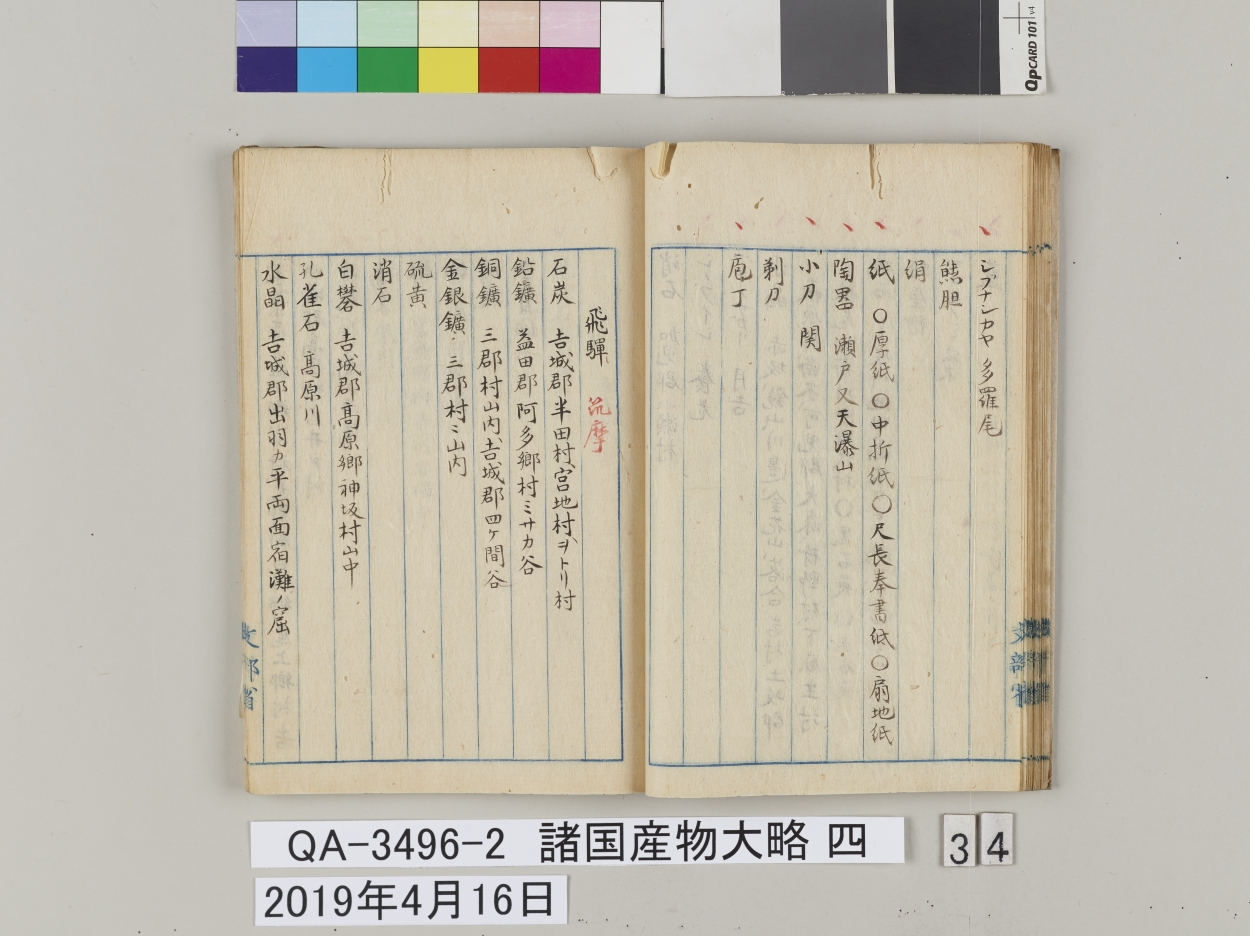 シブナシカヤ 多羅尾
熊胆
絹
紙 〇厚紙〇中折紙〇尺長奉書紙〇扇地紙
陶器 瀬戸又天瀑山
小刀 関
剃刀
庖丁
飛驒 筑摩
石炭 吉城郡半田村、宮地村、ヲトリ村
鉛鑛 益田郡阿多郷村ミサカ谷
銅鑛 三郡村山内、吉城郡四ケ間谷
金銀鑛 三郡村ミ山内
硫黄
消石
白礬 吉城郡高原郷神坂村山中
孔雀石 高原川
水晶 吉城郡出羽カ平両面宿灘ノ窟
文部省
文部省
QA-3496-2 諸国産物大略 四
34
2019年4月16日
QPCARD 101 v4